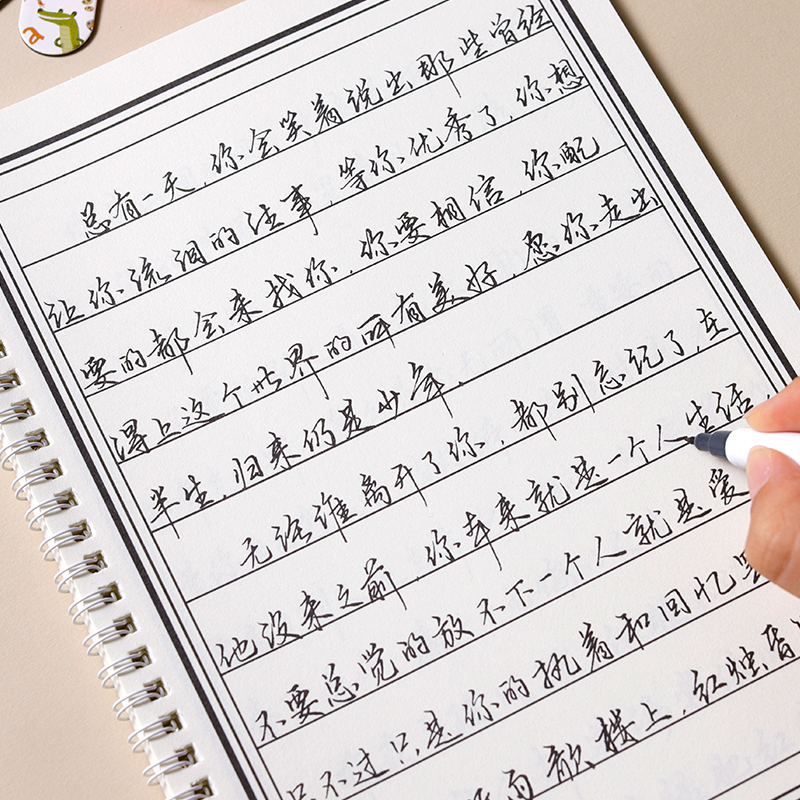 总有一天,你会笑着说出那些曾经
让你流泪的往事,等你优秀了,你想
要的都会来找你,你要相信,你配
得上这个世界的所有美好,愿你走出
半生,归来仍是少年.
无论谁离开了你,都别忘记了,在
他没来之前,你本来就是一个人生活,
不要总觉的放不下一个人就是爱
只不过只是你的执着和回忆
雨歌楼上,红烛昏